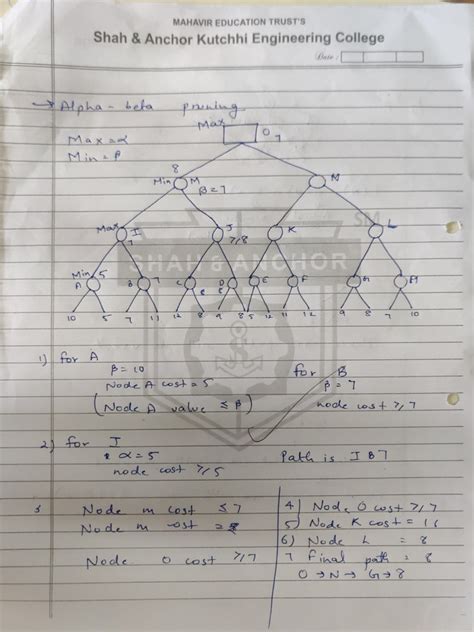 MAHAVIR EDUCATION TRUST'S
Shah & Anchor Kutchhi Engineering College
Date :
→ Alpha - beta pruning
Max = α
Min = β
Max O 7
8
Min M N
β = 7
Max I J K L
7 ≥8
SHAH & ANCHOR
Min 5
A B 7 C D E F
8 8
10 5 7 11 12 8 9 8 5 12 11 12 9 8 7 10
1) for A
β = 10
Node A cost = 5
(Node A value ≤ β)
for B
β = 7
node cost ≥ 7
2) for I
α = 5
node cost ≥ 5
Path is I B 7
3 Node m cost ≤ 7
Node m cost =
Node O cost ≥ 7
4) Node O cost ≥ 7
5) Node K cost =
6) Node L = 8
7 Final path = 8
O → N → G → 8